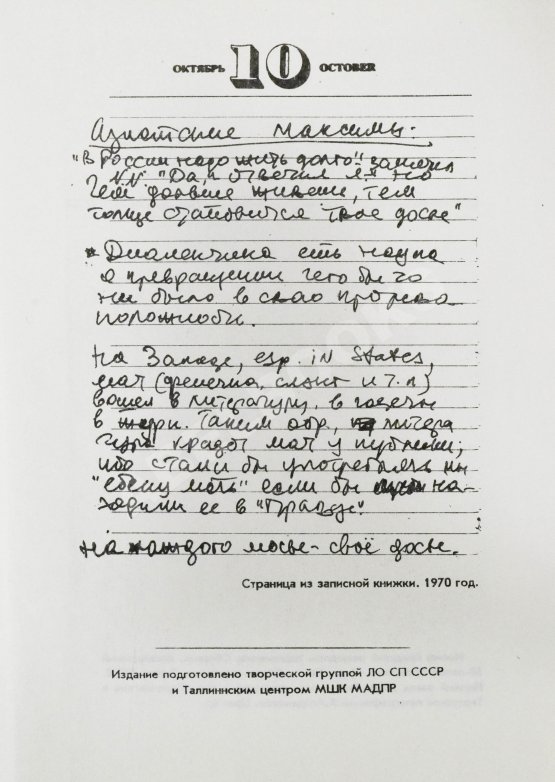 ОКТЯБРЬ 10 OCTOBER
Азиатские максимы:
"В России надо жить долго": заметил
N.N. "Да, я ответил я." но
чем дольше живешь, тем
толще становится твое досье"
* Диалектика есть наука
о превращении чего бы то
ни было в свою противо
положность.
На Западе, esp. in States,
мат (феня, сленг и т.п)
вошел в литературу, в газеты
в Таким обр., литера
тура крадет мат у публики;
ибо стали бы употреблять мы
"ебену мать" если бы на-
ходили ее в "Правде"
на каждого мосье - своё досье.
Страница из записной книжки. 1970 год.
Издание подготовлено творческой группой ЛО СП СССР
и Таллиннским центром МШК МАДПР